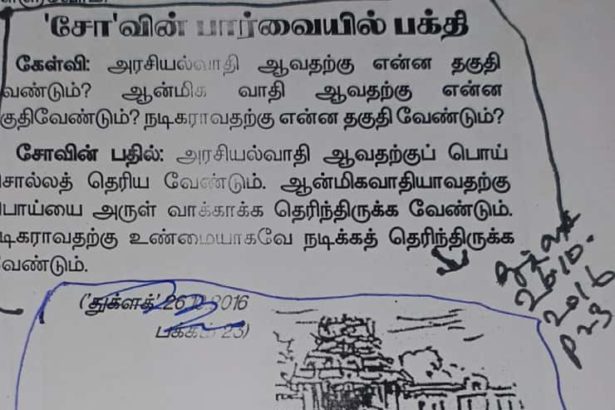 'சோ'வின் பார்வையில் பக்தி
கேள்வி: அரசியல்வாதி ஆவதற்கு என்ன தகுதி
வேண்டும்? ஆன்மிக வாதி ஆவதற்கு என்ன
குதிவேண்டும்? நடிகராவதற்கு என்ன தகுதி வேண்டும்?
சோவின் பதில்: அரசியல்வாதி ஆவதற்குப் பொய்
சொல்லத் தெரிய வேண்டும். ஆன்மிகவாதியாவதற்கு
பொய்யை அருள் வாக்காக்க தெரிந்திருக்க வேண்டும்.
டிகராவதற்கு உண்மையாகவே நடிக்கத் தெரிந்திருக்க
வேண்டும்.
('துக்ளக்' 2016
பக்கம் 23)
26.10.
2016
P 23